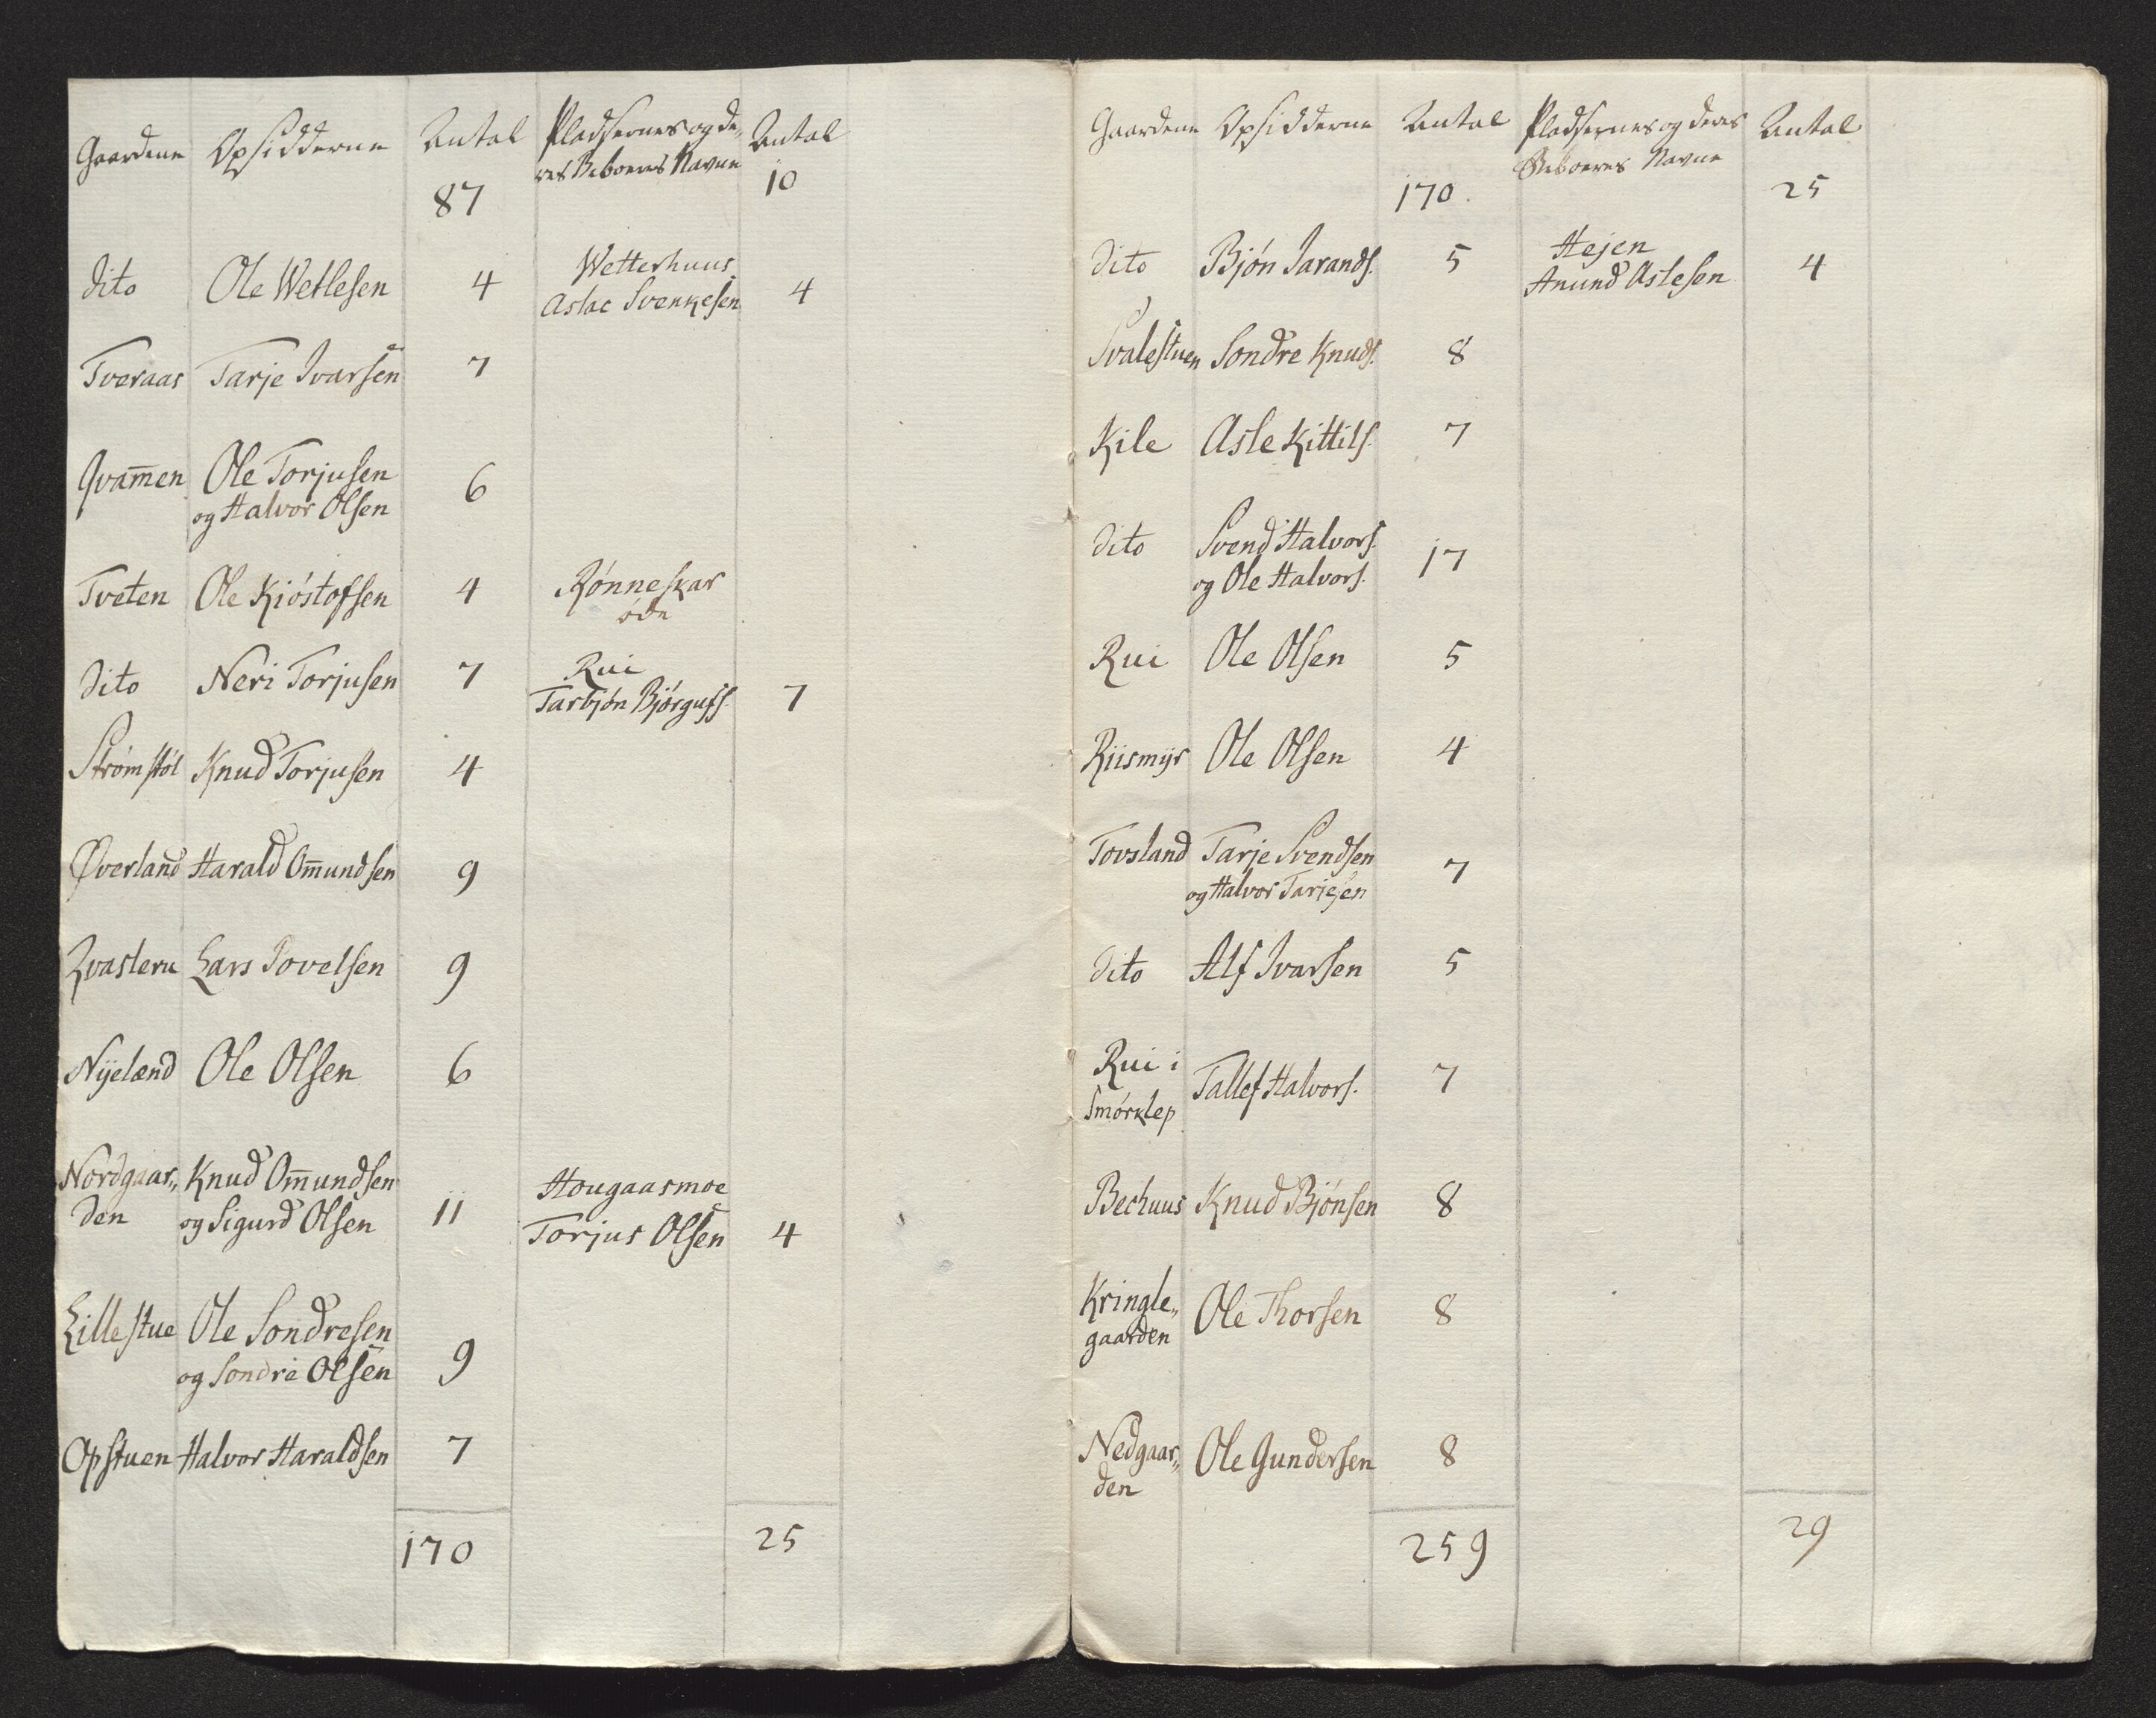 Gaardene Opsidderne Antal Pladsernes og de„ Antal
res Beboeres Navne
87 10
dito Ole Wetlesen 4 Wetterhuus
Aslac Svenkesen 4
Tveraas Tarje Ivarsen 7
Qvam̄en Ole Torjusen
og Halvor Olsen 6
Tveten Ole Kióstofsen 4 Rónneskar
óde
dito Neri Torjusen 7 Rui
Tarbjón Bjórgufs. 7
Strómstól Knud Torjusen 4
Øverland Harald Om̄undsen 9
Qvasteru Lars Povelsen 9
Nÿeland Ole Olsen 6
Nordgaar„ Knud Om̄undsen Hougaasmoe
den og Sigurd Olsen 11 Torjus Olsen 4
Lillestue Ole Sondresen
og Sondre Olsen 9
Opstuen Halvor Haraldsen 7
170 25
Gaardene Opsidderne Antal Pladsernes og deres Antal
Beboeres Navne
170. 25
dito Bjón Jarands. 5 Hejen
Anund Aslesen 4
Svalestuen Sondre Knuds. 8
Kile Asle Kittils. 7
dito Svend Halvors.
og Ole Halvors. 17
Rui Ole Olsen 5
Riismÿr Ole Olsen 4
Tovsland Tarje Svendsen
og Halvor Tarjesen 7
dito Alf Ivarsen 5
Rui i
Smórklep Tallef Halvors. 7
Bechuus Knud Bjónsen 8
Kringle„
gaarden Ole Thorsen 8
Nedgaar„
den Ole Gundersen 8
259 29